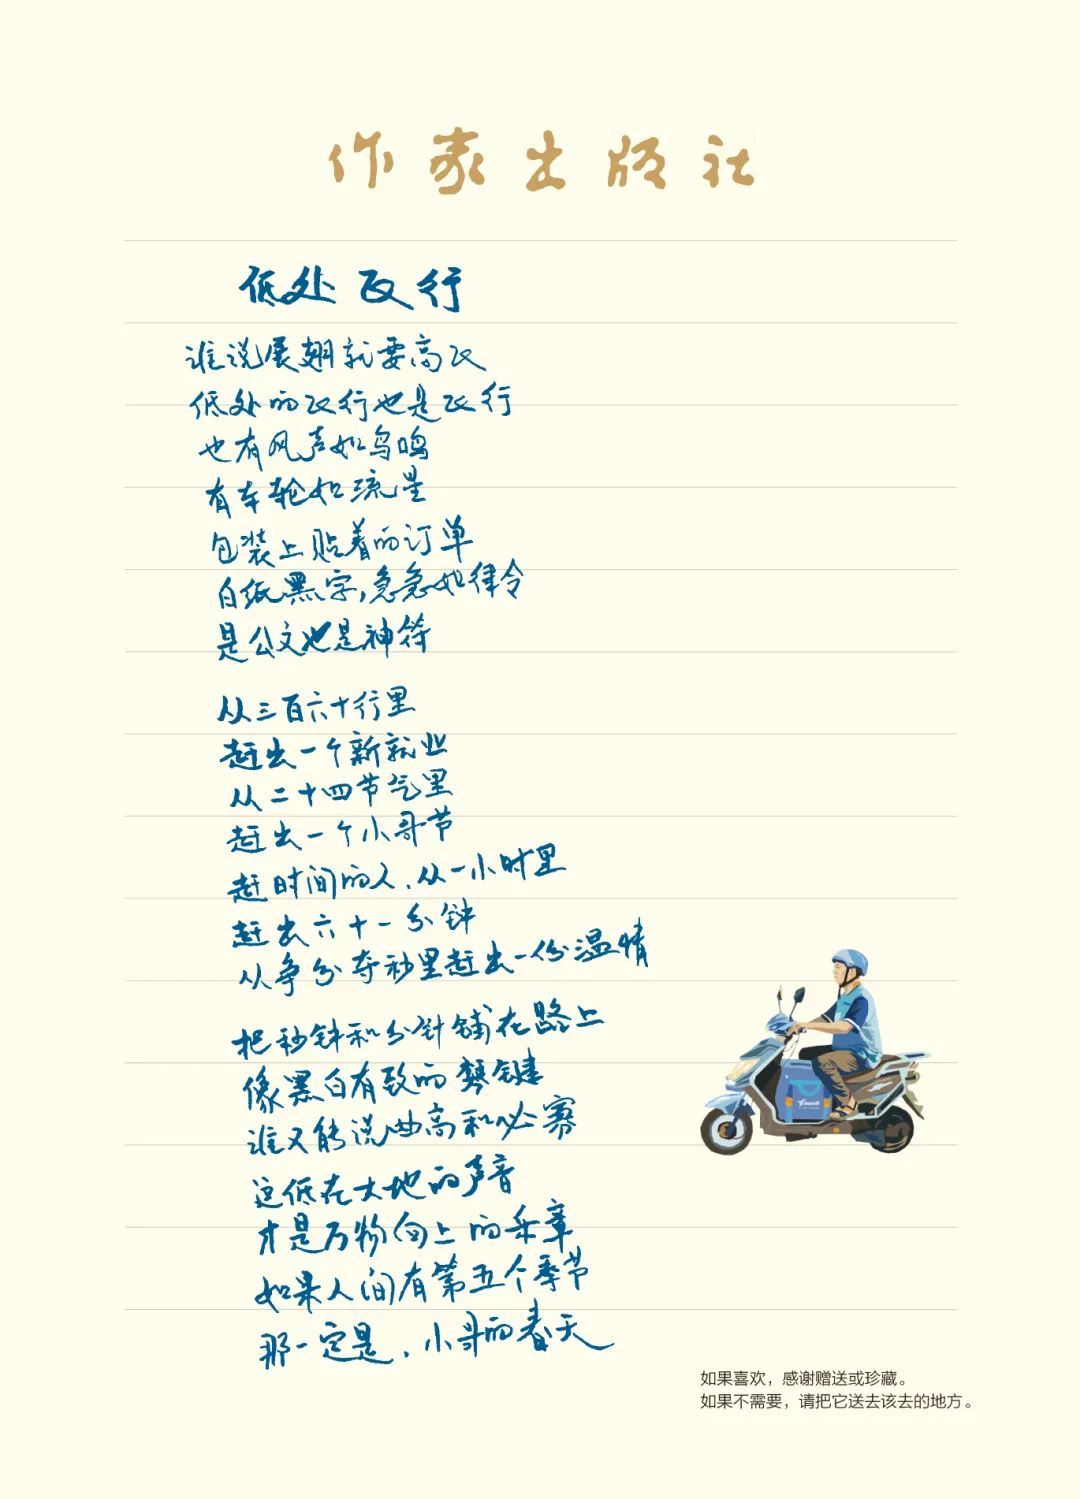 作家出版社
低处飞行
谁说展翅就要高飞
低处的飞行也是飞行
也有风声如鸟鸣
有车轮如流星
包装上贴着的订单
白纸黑字,急急如律令
是公文也是神符
从三百六十行里
赶出一个新就业
从二十四节气里
赶出一个小哥节
赶时间的人.从一小时里
赶出六十一分钟
从争分夺秒里赶出一份温情
把秒钟和分针铺在路上
像黑白有致的琴键
谁又能说曲高和必寡
这低在大地的声音
才是万物向上的乐章
如果人间有第五个季节
那一定是.小哥的春天
如果喜欢，感谢赠送或珍藏。
如果不需要，请把它送去该去的地方。